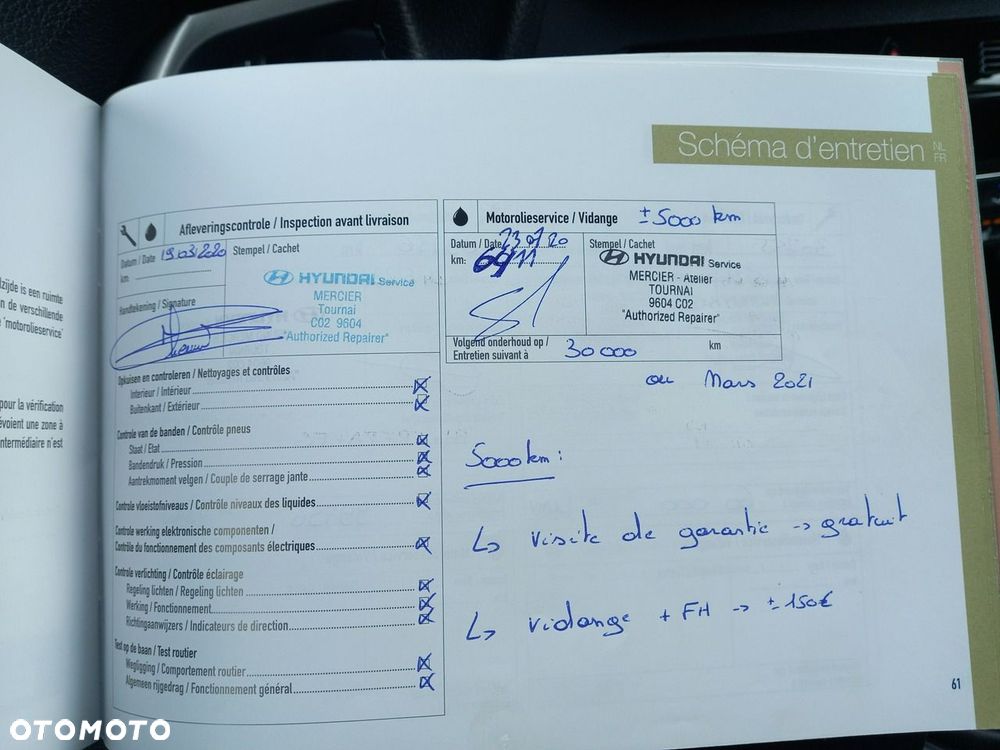 Schéma d'entretien
NL
FR
lzijde is een ruimte
n de verschillende
'motorolieservice'
pour la vérification
évoient une zone à
ntermédiaire n'est
Afleveringscontrole / Inspection avant livraison
Datum / Date 19.03.2020
km:
Stempel / Cachet
HYUNDAI Service
MERCIER
Tournai
C02 9604
"Authorized Repairer"
Handtekening / Signature
Opkuisen en controleren / Nettoyages et contrôles
Interieur / Intérieur
Buitenkant / Extérieur
Controle van de banden / Contrôle pneus
Staat / Etat
Bandendruk / Pression
Aantrekmoment velgen / Couple de serrage jante
Controle vloeistofniveaus / Contrôle niveaux des liquides
Controle werking elektronische componenten /
Contrôle du fonctionnement des composants électriques
Controle verlichting / Contrôle éclairage
Regeling lichten / Regeling lichten
Werking / Fonctionnement
Richtingaanwijzers / Indicateurs de direction
Test op de baan / Test routier
Wegligging / Comportement routier
Algemeen rijgedrag / Fonctionnement général
Motorolieservice / Vidange ±5000 km
Datum / Date
km:
Stempel / Cachet
HYUNDAI Service
MERCIER - Atelier
TOURNAI
9604 C02
"Authorized Repairer"
Volgend onderhoud op /
Entretien suivant à 30 000 km
ou Mars 2021
5000 km:
↳ visite de garantie → gratuit
↳ vidange + FH → ± 150€
61
OTOMOTO